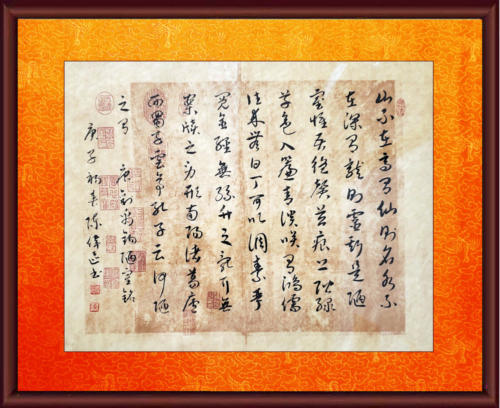 山不在高有仙則名水不
在深有龍則靈斯是陋
室惟吾德馨苔痕上階綠
草色入簾青談笑有鴻儒
往來無白丁可以調素琴
閱金經無絲竹之亂耳無
案牘之勞形南陽諸葛廬
西蜀子雲亭孔子云何陋
之有 唐劉禹錫陋室銘
庚子 陳偉 書